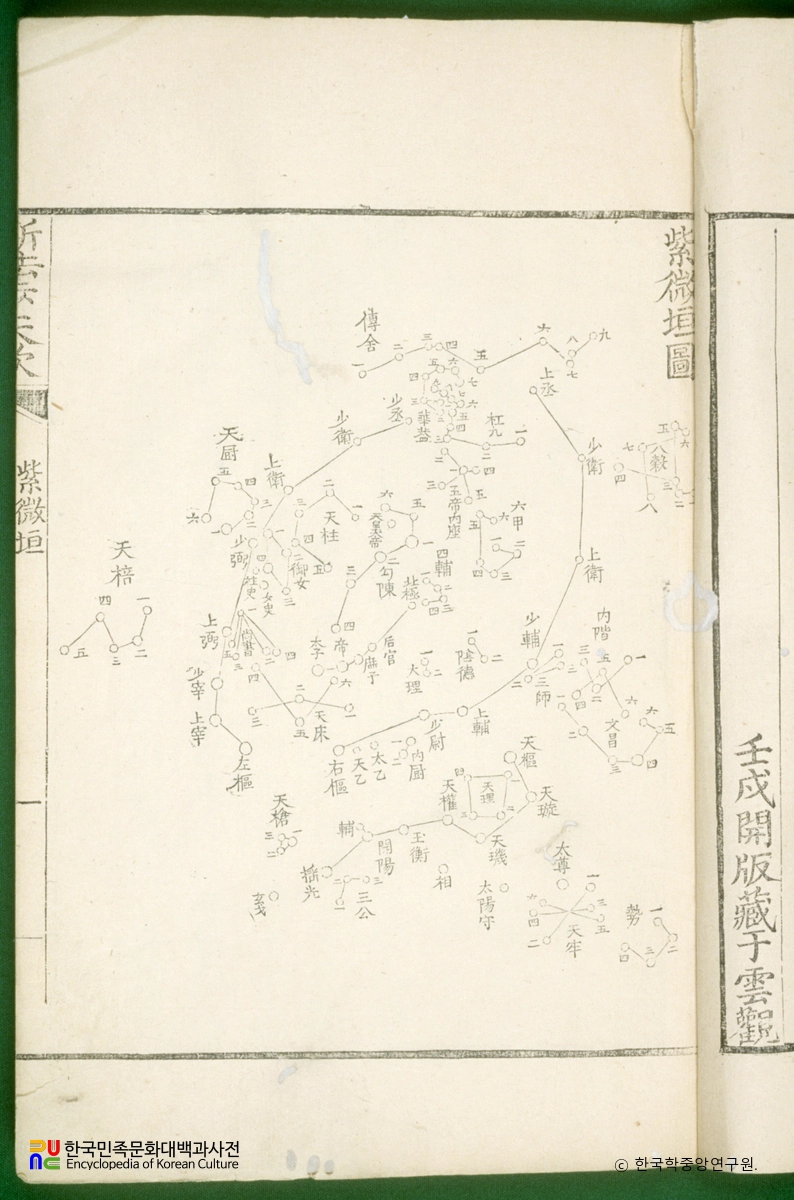 壬戌開版藏于雲觀
紫微垣圖
傳舍
一 二 三 四 五 六 七 八 九
上丞
少丞
華蓋
杠九
少衛
少衛
上衛
上衛
天厨
八穀
五帝內座
六甲
天柱
御女
天皇大帝
勾陳
四輔
北極
少弼
柱史
女史
尚書
上弼
天棓
一 二 三 四 五
少宰
上宰
左樞
太子
帝
庶子
后宮
大理
陰德
少輔
三師
內階
文昌
一 二 三 四 五 六
天床
上輔
少尉
右樞
天乙
太乙
內厨
天樞
天璇
天理
天權
天璣
玉衡
開陽
輔
搖光
天槍
玄戈
三公
相
太陽守
太尊
天牢
勢
一 二 三 四
紫微垣
한국민족문화대백과사전
Encyclopedia of Korean Culture
© 한국학중앙연구원.